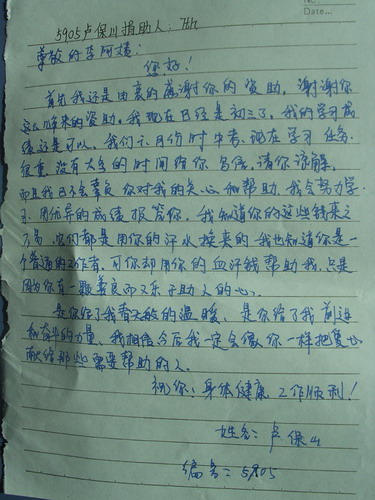 No.
Date...
5905卢保山捐助人:
尊敬的李阿姨:
您好!
首先我还是由衷的感谢你的资助。谢谢你
这么几年来的资助。我现在已经是初三了。我的学习成
绩还是可以。我们六月份中考。现在学习任务
很重。没有太多的时间给你写信。请你谅解。
而且我已不会辜负你对我的关心和帮助。我会努力学
习。用优异的成绩报答你。我知道你的这些钱来之
不易。它们都是用你的汗水换来的。我也知道你是一
个普通的工作者。可你却用你的血汗钱帮助我。只是
因为你有一颗善良而又乐于助人的心。
是你给了我春天般的温暖、是你给了我前进
和奋斗的力量、我相信今后我一定会像你一样把爱心
献给那些需要帮助的人。
祝你:身体健康 工作顺利!
姓名:卢保山
编号:5905